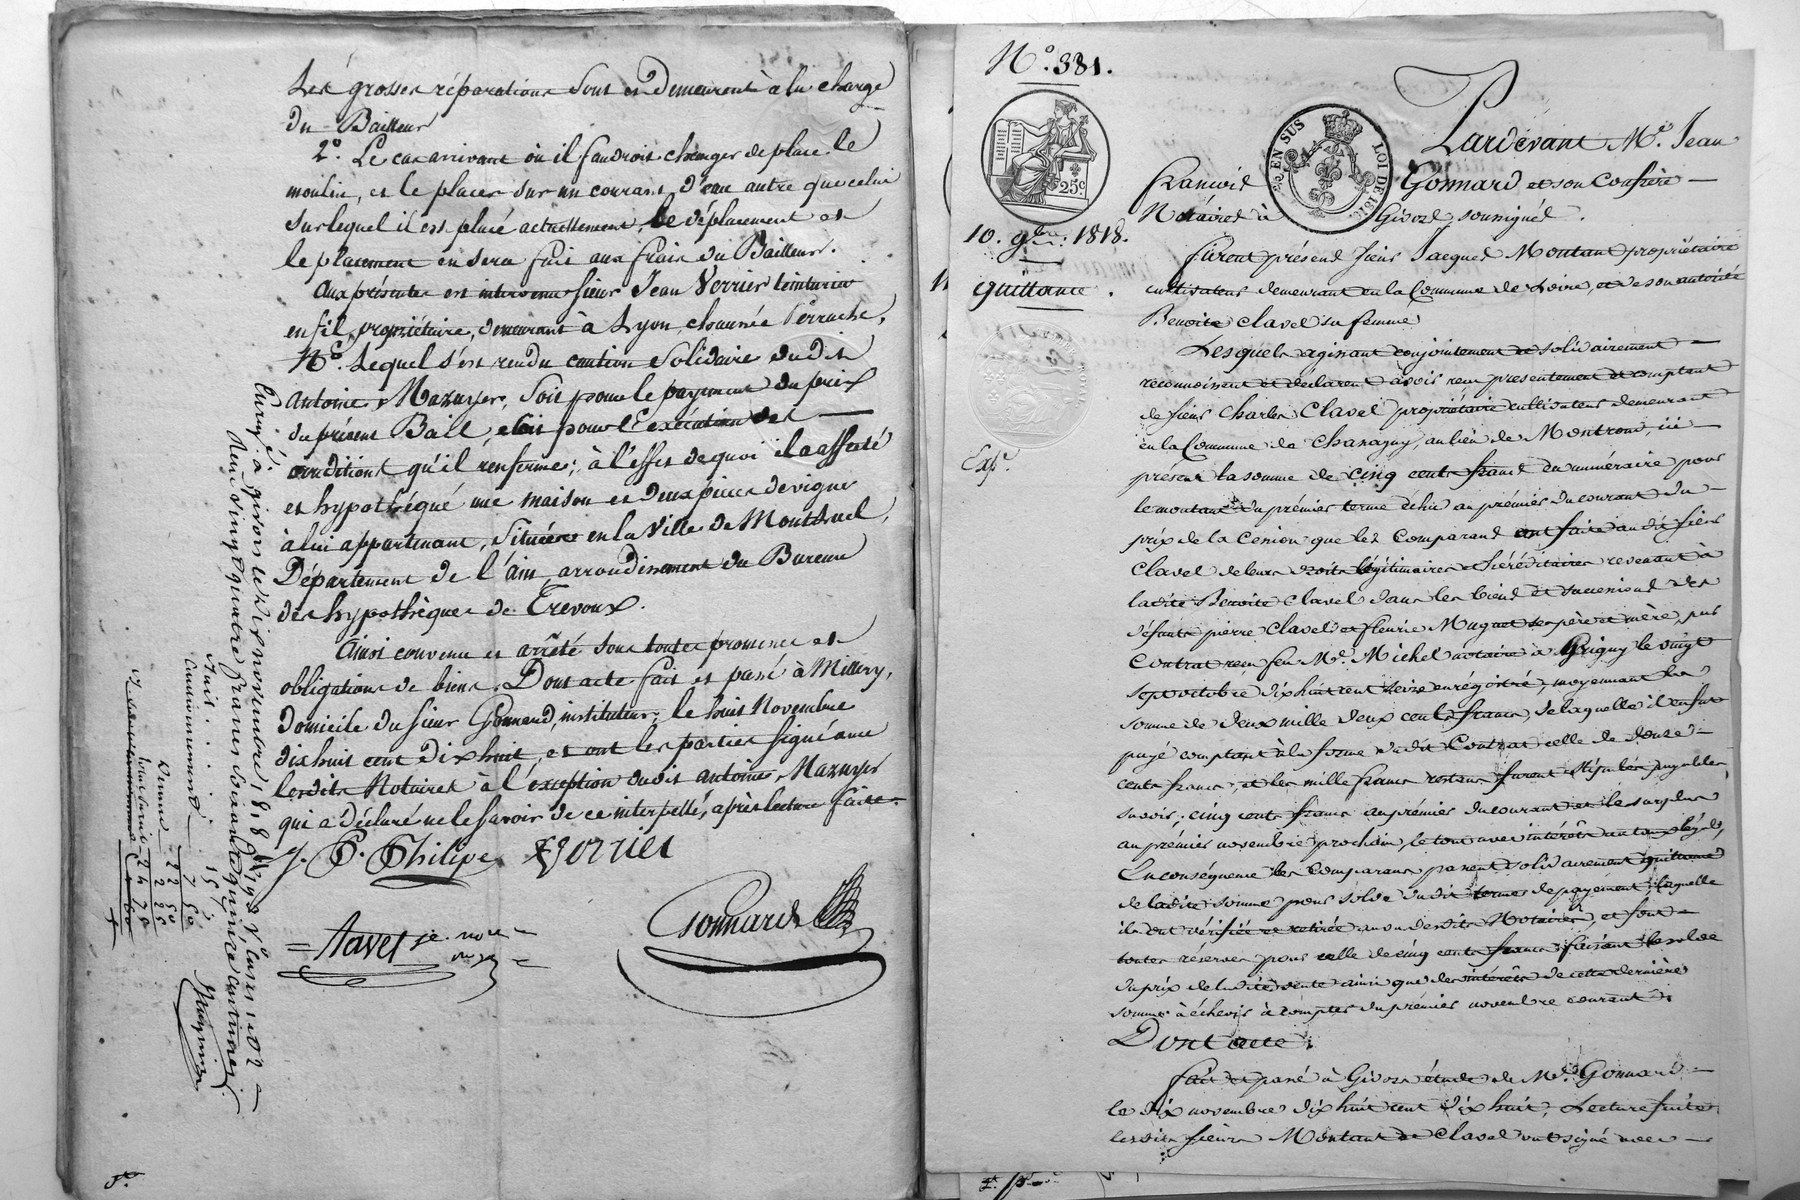 Les grosses réparations sont et demeurent à la charge
du Bailleur
2°. Le cas arrivant où il faudroit changer de place le
moulin, et le placer sur un courant d'eau autre que celui
sur lequel il est placé actuellement, le déplacement et
le placement en sera fait aux frais du Bailleur.
Aux présentes est intervenu sieur Jean Verrier teinturier
en fil, propriétaire, demeurant à Lyon, chaussée Perrache,
N°. Lequel s'est rendu caution solidaire dudit
antoine Mazuyer, soit pour le payement du prix
du présent Bail, soit pour l'Exécution des
conditions qu'il renferme; à l'effet de quoi il a affecté
et hypothéqué une maison et deux pièces de vignes
à lui appartenant, situées en la ville de Montluel,
Département de l'ain, arrondissement du Bureau
des hypothèques de Trevoux.
Ainsi convenu et arrêté sous toute promesse et
obligations de biens. Dont acte fait et passé à Millery,
Domicile du sieur Gonnard, instituteur, le huit Novembre
dix huit cent dix huit, et ont les parties signé avec
lesdits Notaires à l'exception dudit antoine Mazuyer
qui a déclaré ne le savoir de ce interpellé, après lecture faite.
J. P. Philipe Verrier
Favel
Gonnard
Enrégé. à givors le dix novembre 1818
Reçu vingt quatre francs soixante quinze centimes
Bail
Cautionnement
7 50
15
22 50
2 25
24 75
N°. 381.
25c
EN SUS
LOI DE 1816
10. 9bre. 1818.
quittance.
Exp.
Pardevant Me. Jean
François Gonnard et son Confrère
Notaires à Givors, soussignés.
furent présens sieur Jacques Montant propriétaire
cultivateur demeurant en la Commune de Loire, et de son autorité
Benoite Clavel sa femme
Lesquels agissant conjointement et solidairement
reconnoissent et déclarent avoir reçu présentement et comptant
de sieur Charles Clavel propriétaire cultivateur demeurant
en la Commune de Chassagny, au lieu de Montrond, ici
présent la somme de cinq cents francs en numéraire pour
le montant du prémier terme échu au prémier du courant du
prix de la Cession que les Comparans ont faite audit sieur
Clavel de leurs droits légitimaires et héréditaires revenant à
ladite Benoite Clavel dans les biens et successions des
défunts pierre Clavel et fleurie Muguet ses père et mère, par
Contrat reçu feu Me. Michel notaire à Grigny le vingt
sept octobre dix huit cent seize enrégistré, moyennant la
somme de deux mille deux cents francs, de laquelle il en fut
payé comptant à la forme dudit Contrat celle de douze
cents francs, et les mille francs restans furent stipulés payables,
savoir; cinq cents francs au prémier du courant et le surplus
au prémier novembre prochain, le tout avec intérêts au taux légal,
En conséquence les Comparans passent solidairement quittance
de ladite somme pour solde dudit terme de payement, laquelle
ils ont vérifiée et retirée au vu desdits Notaires, et font
toutes réserves pour celle de cinq cents francs faisant le solde
du prix de ladite vente ainsi que des intérêts de cette dernière
somme à échoir à compter du prémier novembre courant.
Dont acte.
fait et passé à Givors étude de Me. Gonnard
le dix novembre dix huit cent dix huit. Lecture faite
lesdits sieurs Montant et Clavel ont signé avec